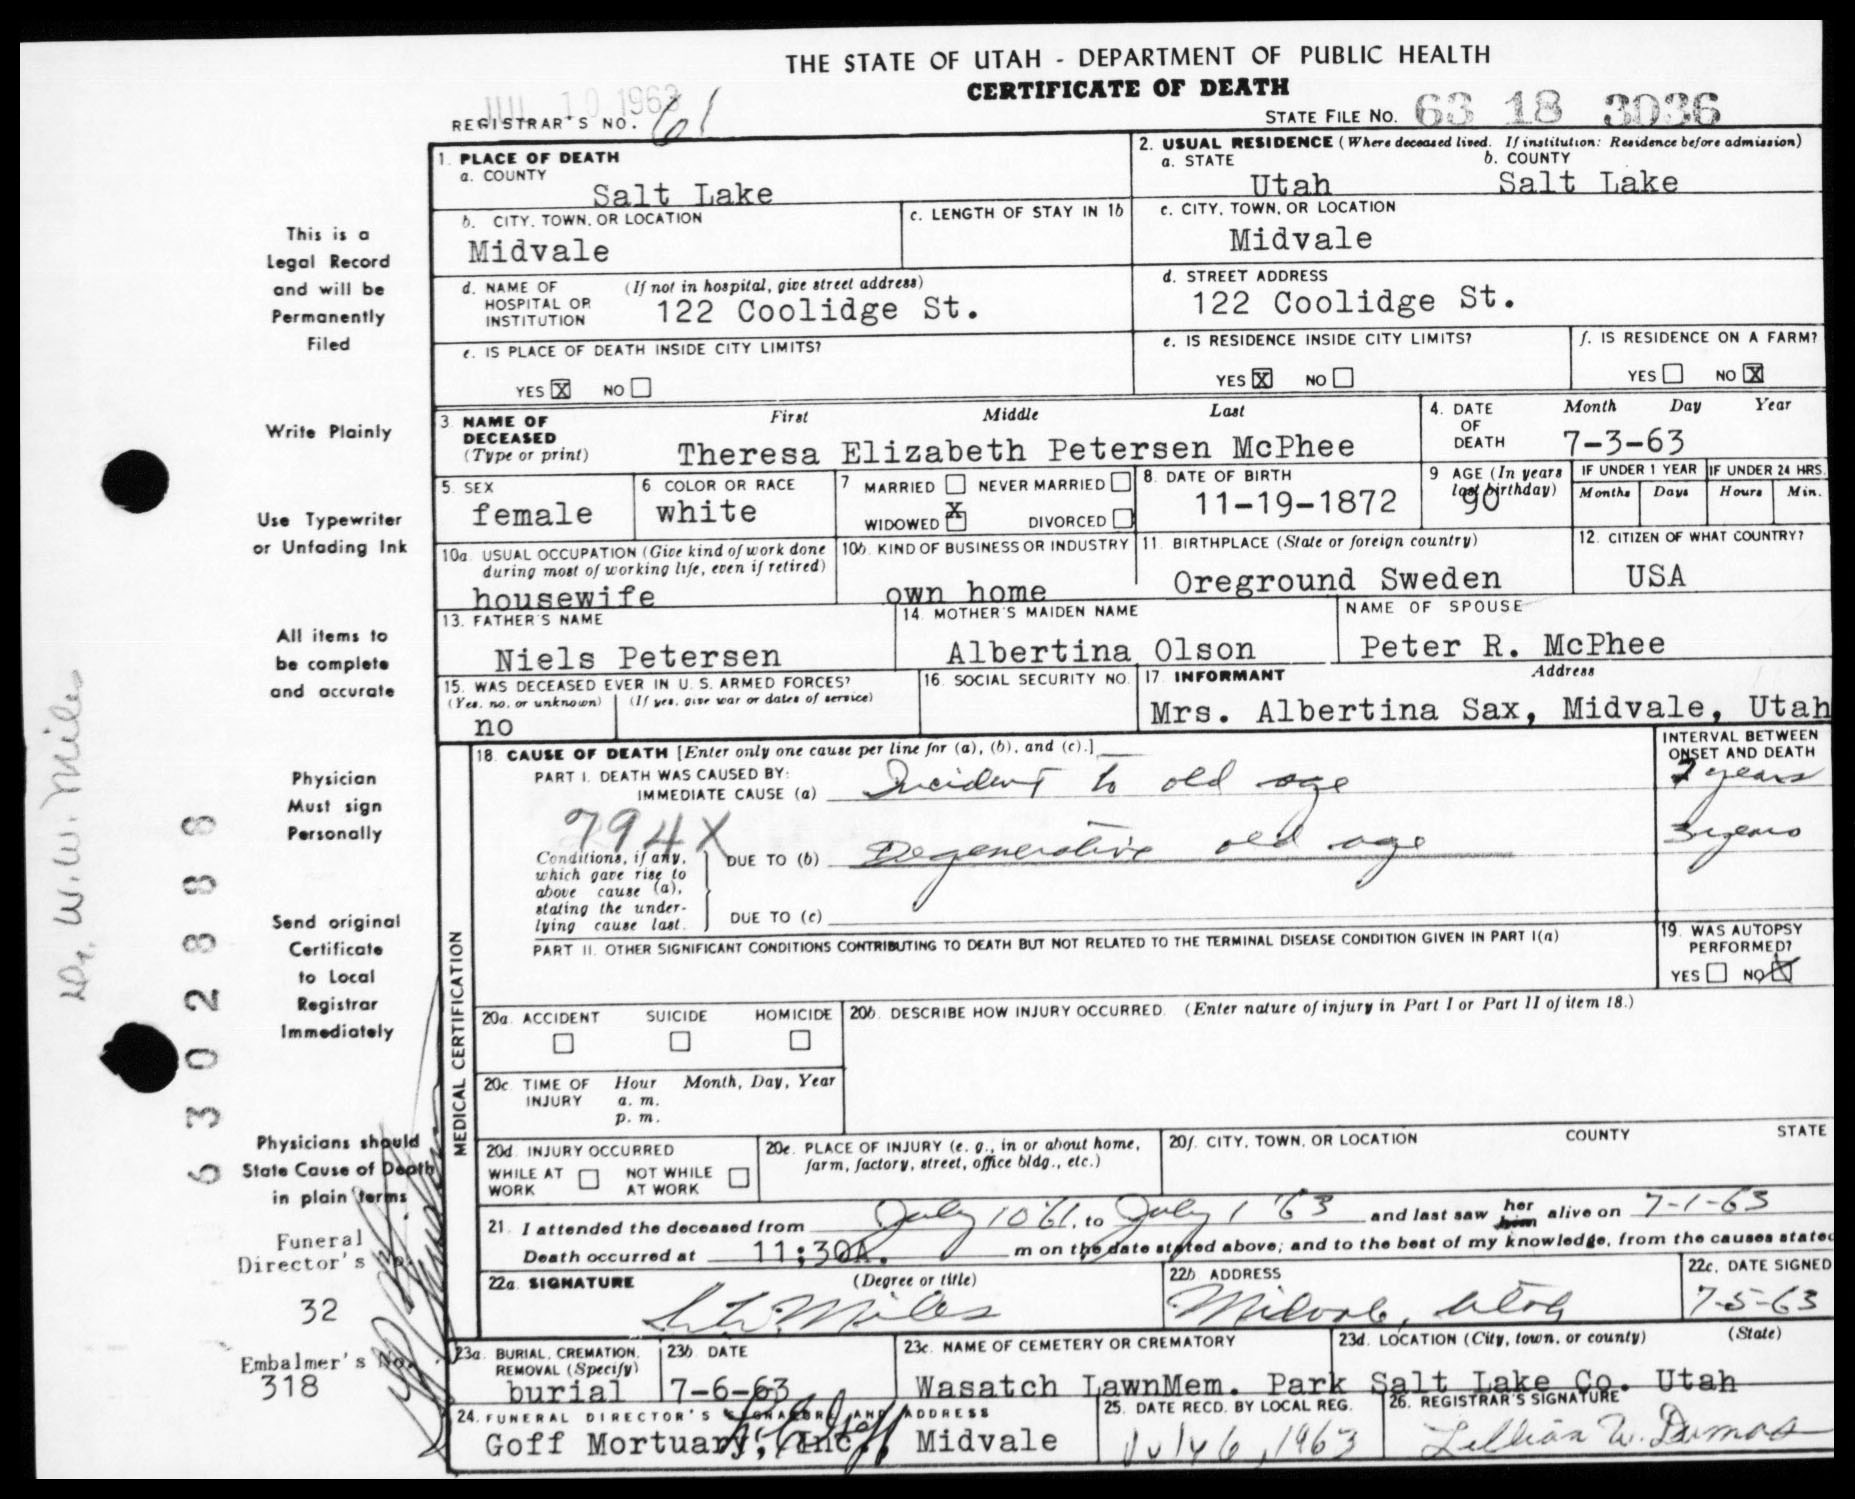 THE STATE OF UTAH - DEPARTMENT OF PUBLIC HEALTH
CERTIFICATE OF DEATH
JUL 10 1963
REGISTRAR'S NO. 61
STATE FILE NO. 63 18 3036
1. PLACE OF DEATH
a. COUNTY
Salt Lake
2. USUAL RESIDENCE (Where deceased lived. If institution: Residence before admission)
a. STATE b. COUNTY
Utah Salt Lake
b. CITY, TOWN, OR LOCATION
Midvale
c. LENGTH OF STAY IN 1b
c. CITY, TOWN, OR LOCATION
Midvale
d. NAME OF HOSPITAL OR INSTITUTION (If not in hospital, give street address)
122 Coolidge St.
d. STREET ADDRESS
122 Coolidge St.
e. IS PLACE OF DEATH INSIDE CITY LIMITS?
YES X NO
e. IS RESIDENCE INSIDE CITY LIMITS?
YES X NO
f. IS RESIDENCE ON A FARM?
YES NO X
3. NAME OF DECEASED (Type or print)
First Middle Last
Theresa Elizabeth Petersen McPhee
4. DATE OF DEATH Month Day Year
7-3-63
5. SEX
female
6 COLOR OR RACE
white
7 MARRIED NEVER MARRIED
WIDOWED X DIVORCED
8. DATE OF BIRTH
11-19-1872
9 AGE (In years last birthday)
90
IF UNDER 1 YEAR IF UNDER 24 HRS.
Months Days Hours Min.
10a. USUAL OCCUPATION (Give kind of work done during most of working life, even if retired)
housewife
10b. KIND OF BUSINESS OR INDUSTRY
own home
11. BIRTHPLACE (State or foreign country)
Oreground Sweden
12. CITIZEN OF WHAT COUNTRY?
USA
13. FATHER'S NAME
Niels Petersen
14. MOTHER'S MAIDEN NAME
Albertina Olson
NAME OF SPOUSE
Peter R. McPhee
15. WAS DECEASED EVER IN U. S. ARMED FORCES?
(Yes, no, or unknown) (If yes, give war or dates of service)
no
16. SOCIAL SECURITY NO.
17. INFORMANT Address
Mrs. Albertina Sax, Midvale, Utah
18. CAUSE OF DEATH [Enter only one cause per line for (a), (b), and (c).]
INTERVAL BETWEEN ONSET AND DEATH
PART I. DEATH WAS CAUSED BY:
IMMEDIATE CAUSE (a) Incident to old age
2 years
794X
Conditions, if any, which gave rise to above cause (a), stating the underlying cause last.
DUE TO (b) Degenerative old age
3 years
DUE TO (c)
PART II. OTHER SIGNIFICANT CONDITIONS CONTRIBUTING TO DEATH BUT NOT RELATED TO THE TERMINAL DISEASE CONDITION GIVEN IN PART I(a)
19. WAS AUTOPSY PERFORMED?
YES NO X
MEDICAL CERTIFICATION
20a. ACCIDENT SUICIDE HOMICIDE
20b. DESCRIBE HOW INJURY OCCURRED. (Enter nature of injury in Part I or Part II of item 18.)
20c. TIME OF INJURY Hour Month, Day, Year
a. m.
p. m.
20d. INJURY OCCURRED
WHILE AT WORK NOT WHILE AT WORK
20e. PLACE OF INJURY (e. g., in or about home, farm, factory, street, office bldg., etc.)
20f. CITY, TOWN, OR LOCATION COUNTY STATE
21. I attended the deceased from July 10 '61, to July 1 '63 and last saw her him alive on 7-1-63
Death occurred at 11:30A. m on the date stated above; and to the best of my knowledge, from the causes stated
22a. SIGNATURE (Degree or title)
Miles
22b ADDRESS
Midvale, Utah
22c. DATE SIGNED
7-5-63
23a. BURIAL, CREMATION, REMOVAL (Specify)
burial
23b. DATE
7-6-63
23c. NAME OF CEMETERY OR CREMATORY
Wasatch LawnMem. Park
23d. LOCATION (City, town, or county) (State)
Salt Lake Co. Utah
24. FUNERAL DIRECTOR'S SIGNATURE AND ADDRESS
Goff Mortuary, Inc., Midvale
25. DATE RECD. BY LOCAL REG.
July 6, 1963
26. REGISTRAR'S SIGNATURE
Lillian W. Dumas
This is a
Legal Record
and will be
Permanently
Filed
Write Plainly
Use Typewriter
or Unfading Ink
All items to
be complete
and accurate
Physician
Must sign
Personally
Send original
Certificate
to Local
Registrar
Immediately
Physicians should
State Cause of Death
in plain terms
Funeral
Director's No.
32
Embalmer's No.
318
Dr. W. W. Miles
6302888